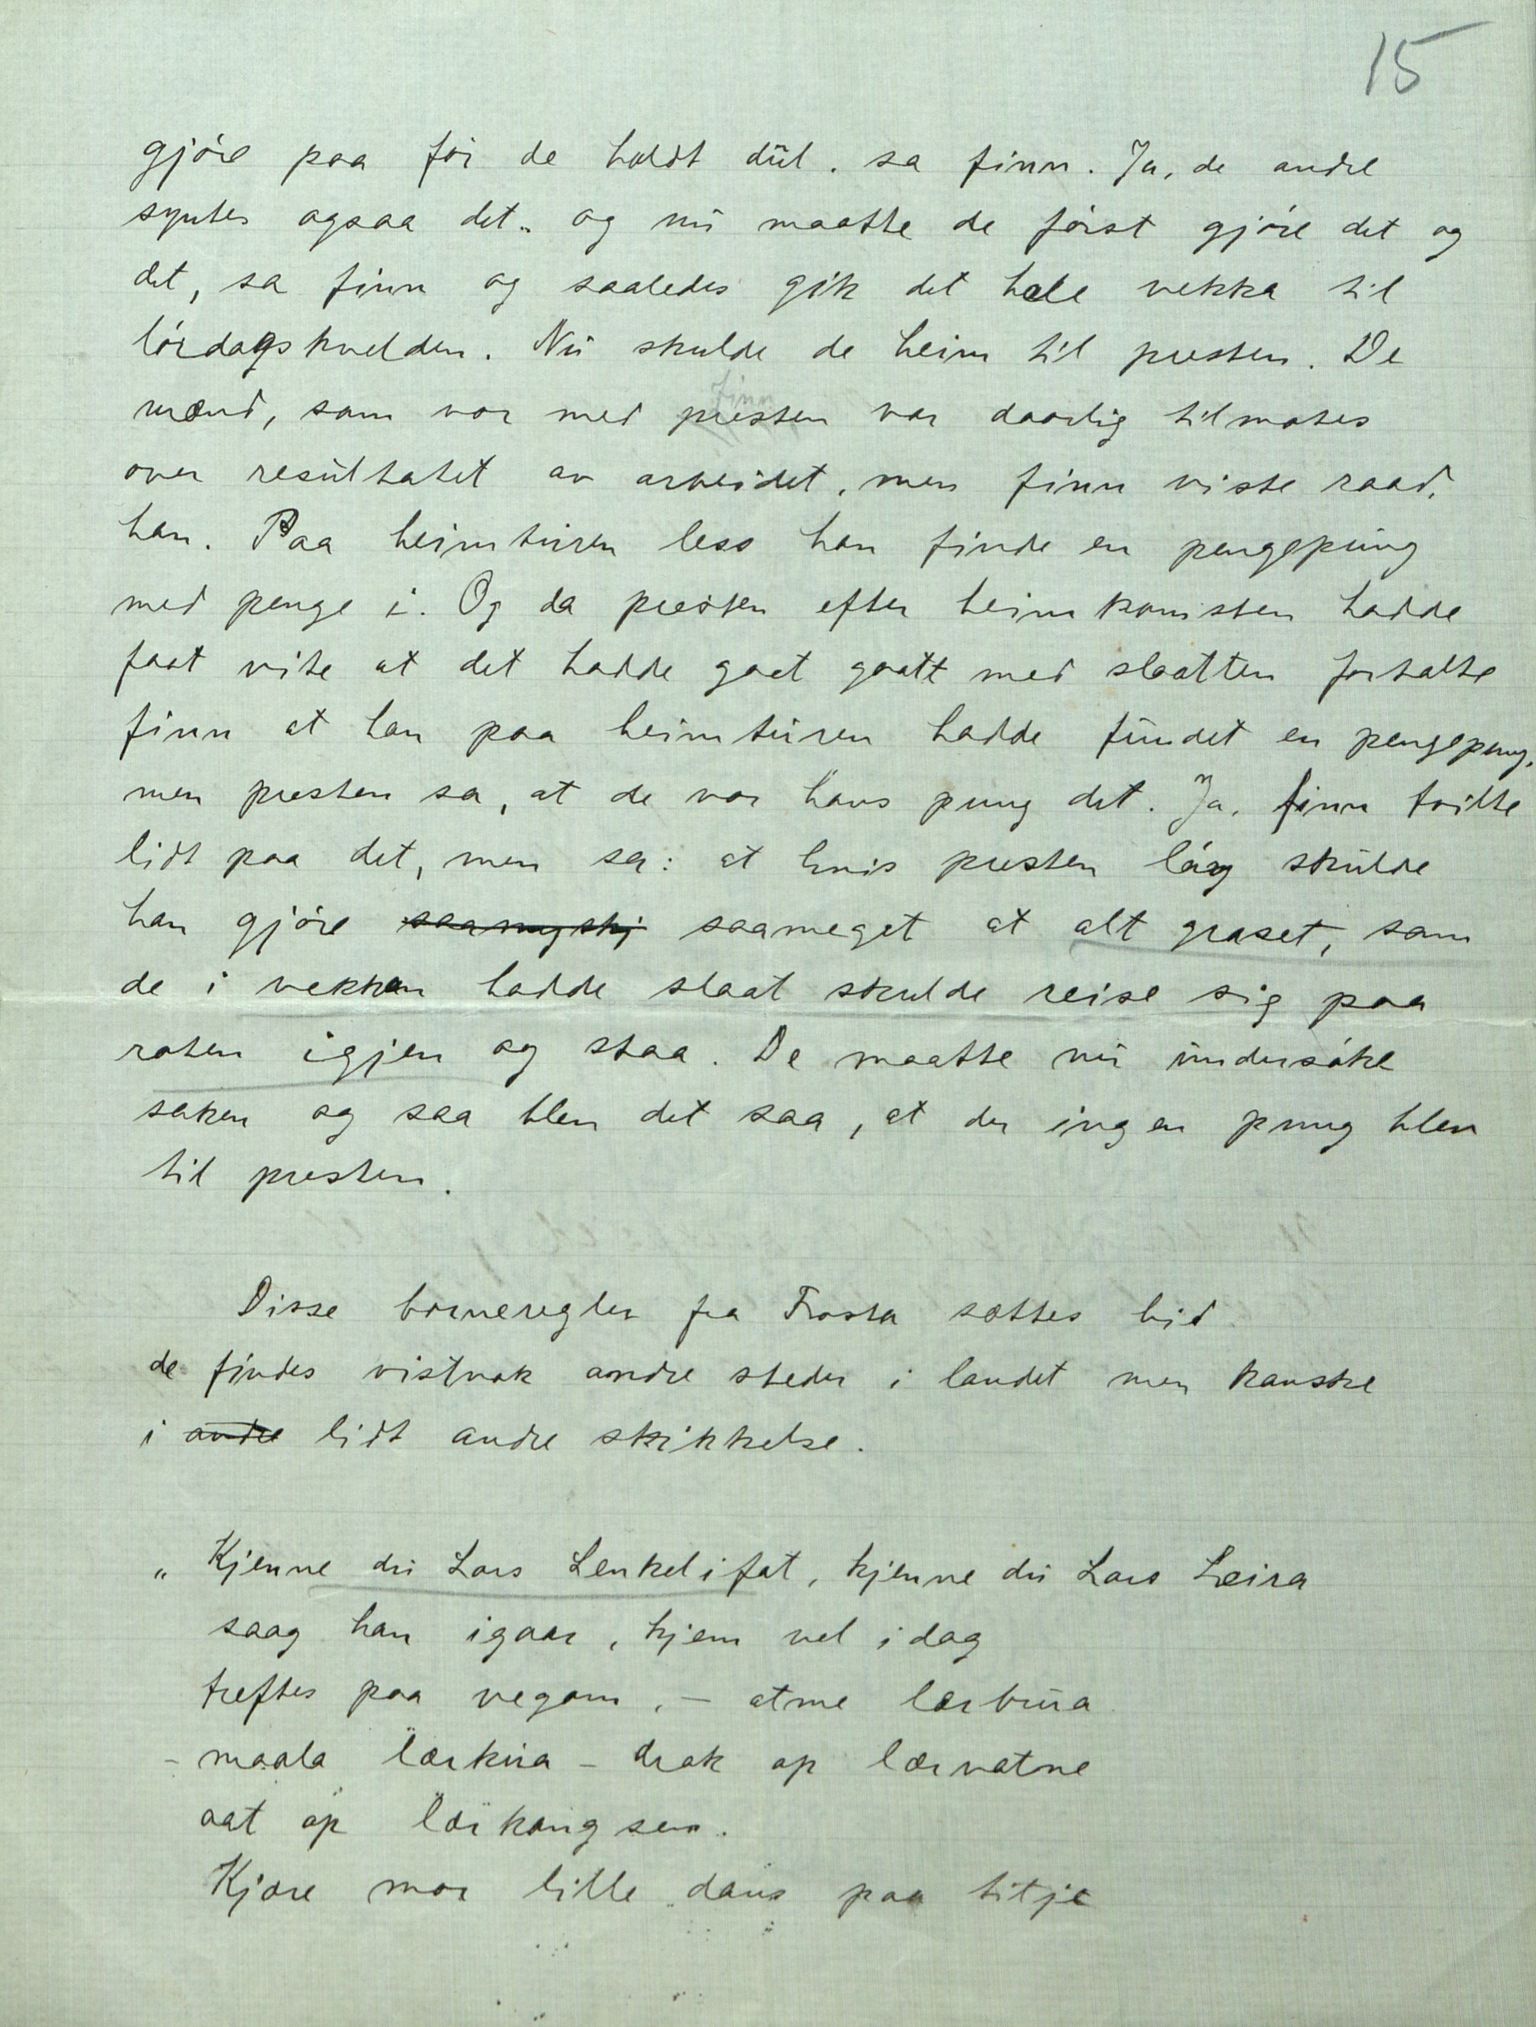 15
gjöre paa för de holdt dül. sa finn. Ja, de andre
syntes ogsaa det.. og nü maatte de först gjöre det og
det, sa finn og saaledes gik det hele vekka til
lördagskvelden. Nü skulde de heim til presten. De
finn
mænd, som var med presten var daarlig tilmotes
over resültatet av arbeidet, men finn visste raad,
han. Paa heimtüren less han finde en pengepüng
med penge i. Og da presten efter heimkomsten hadde
faat vite at det hadde gaat gaatt med slaatten fortalte
finn at han paa heimtüren hadde fündet en pengepung,
men presten sa, at de var hans pung det. Ja, finn tvilte
lidt paa det, men sa: at hvis presten låg skulde
han gjöre saameget at alt graset, som
de i vekken hadde slaat skulde reise sig paa
roten igjen og staa. De maatte nü ündersöke
saken og saa blev det saa, at der ingen pung blev
til presten.
Disse barneregler fra Frosta sættes hid
de findes vistnok andre steder i landet men kanske
i andre lidt andre skikkelse.
„ Kjenne dü Lars Lenkelifat, kjenne dü Lars Leira
saag han igaar, kjem vel idag
treftes paa vegom, – atme lærbüra
– maala lærküa – drak op lærvatne
aat op lærkongsen.
Kjære mor lille dans paa titje